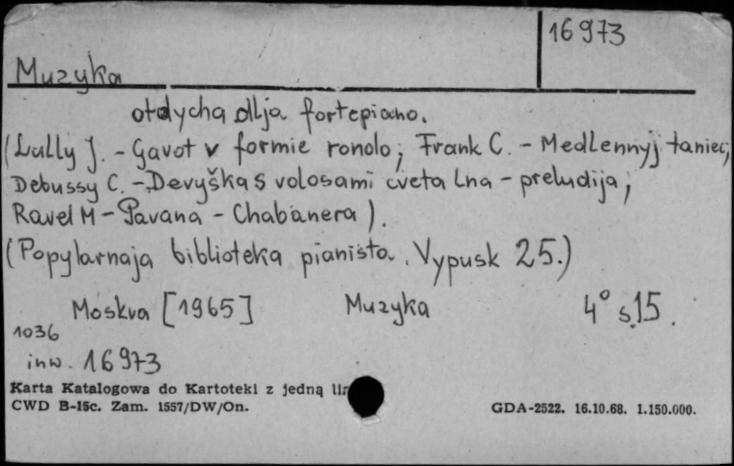 16973
Muzyka
otdycha dlja fortepiano.
(Lully J. - Gavot v formie rondo; Frank C. - Medlennyj taniec;
Debussy C. - Devyška s volosami cveta lna - preludija;
Ravel M - Pavana - Chabanera).
(Popylarnaja biblioteka pianista. Vypusk 25.)
Moskva [1965] Muzyka 4° s.15.
1036
inw. 16973
Karta Katalogowa do Kartoteki z jedną
CWD B-15c. Zam. 1557/DW/On. GDA-2522. 16.10.68. 1.150.000.